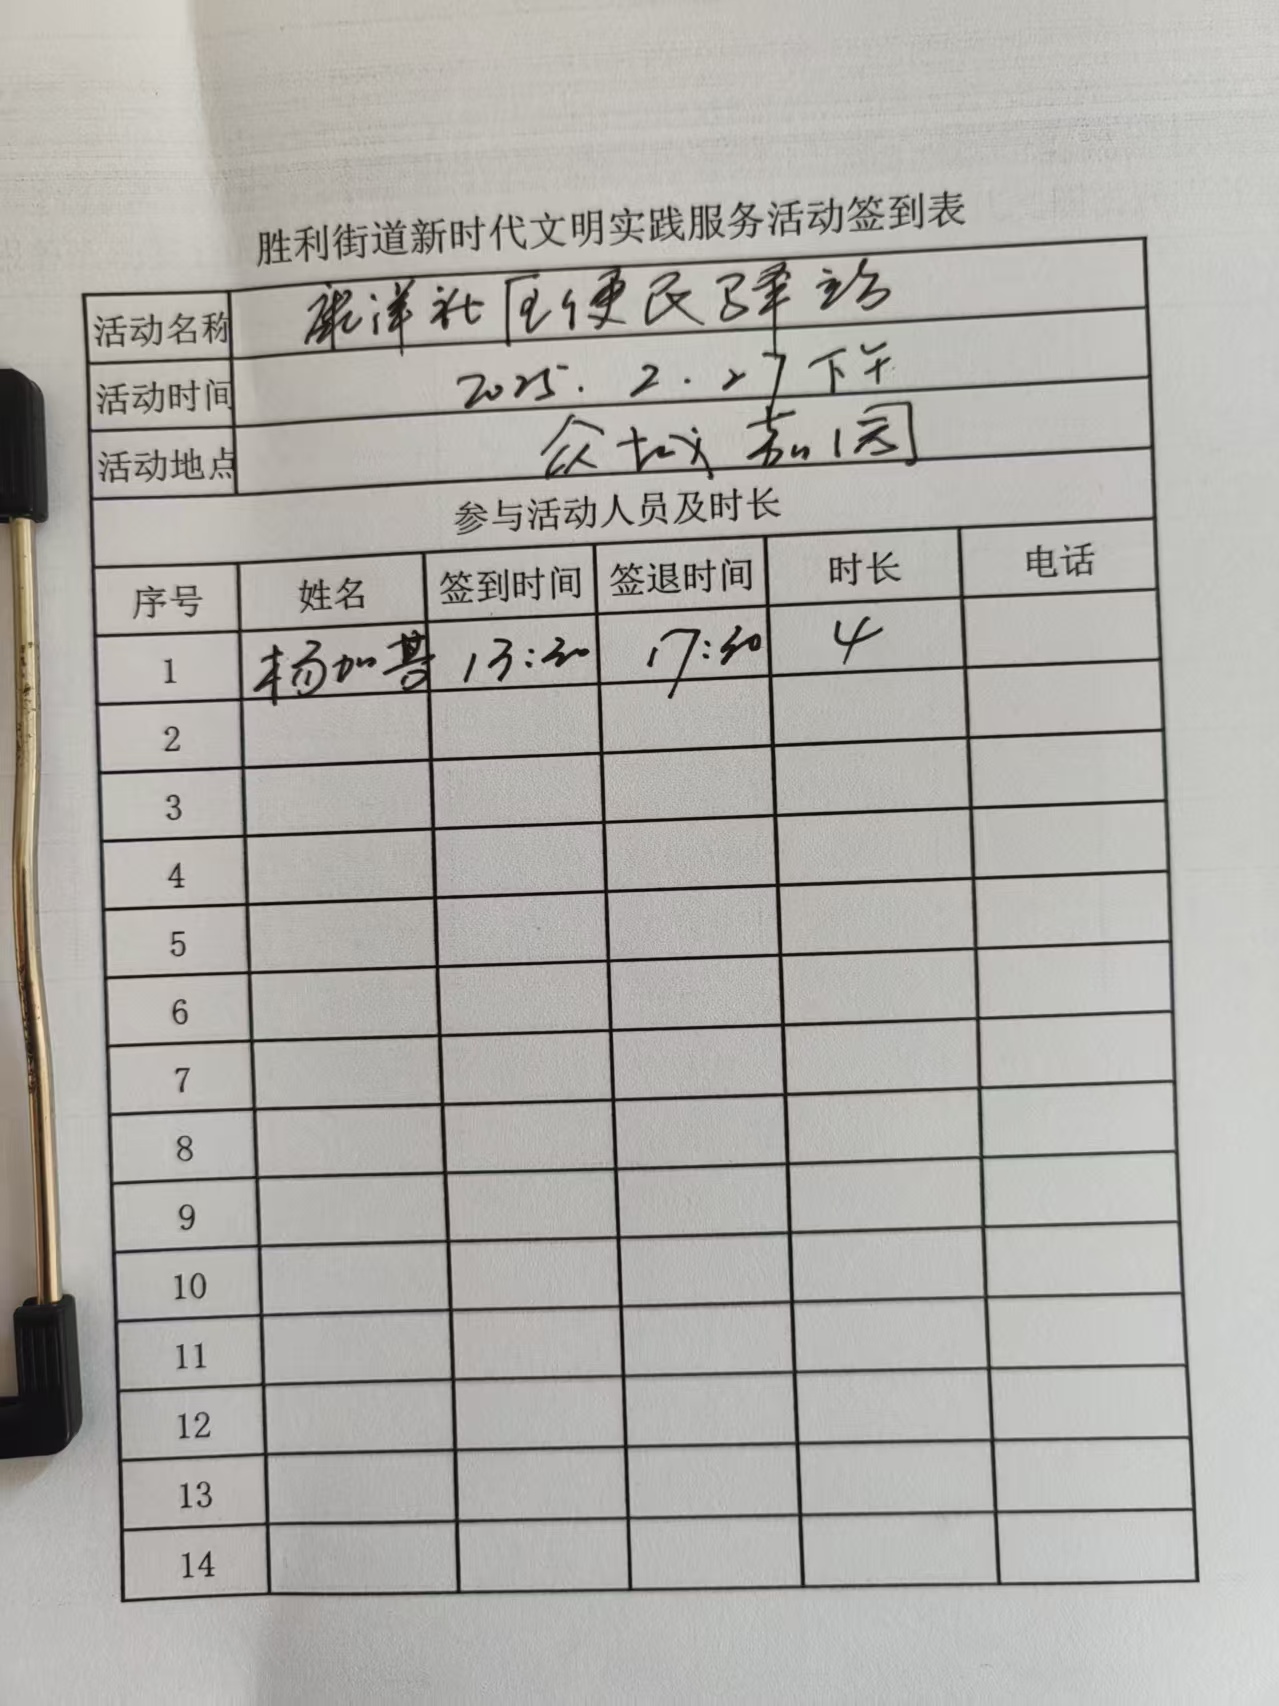 胜利街道新时代文明实践服务活动签到表
活动名称 社区便民驿站
活动时间 2025.2.27下午
活动地点 众城嘉园
参与活动人员及时长
序号 姓名 签到时间 签退时间 时长 电话
1 杨加 13:30 17:30 4
2
3
4
5
6
7
8
9
10
11
12
13
14